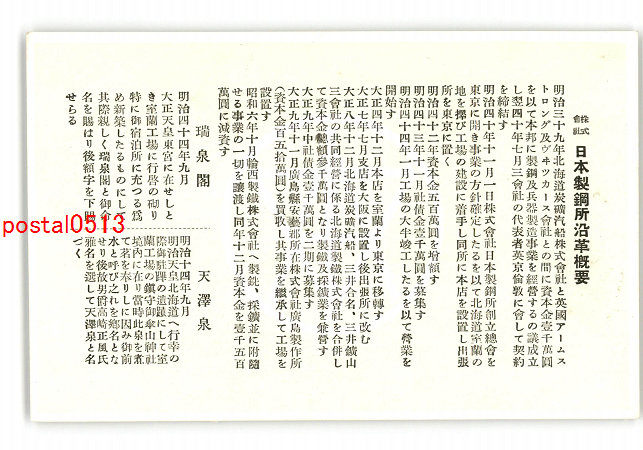 株式會社 日本製鋼所沿革概要
明治三十九年北海道炭礦汽船株式會社と英國アームス
トロング及ヴィッカース會社との間に資本金壹千萬圓
を以て本邦に製鋼及兵器製造事業を經營するの議成立
し翌四十年七月三會社の代表者英京倫敦に會して契約
を締結す
明治四十年十一月一日株式會社日本製鋼所創立總會を
東京に開き事業の方針確定したるを以て北海道室蘭の
地を擇び工場の建設に着手し同所に本店を設置し出張
所を東京に置く
明治四十二年資本金五百萬圓を增額す
明治四十三年十一月社債金壹千萬圓を募集す
明治四十四年一月工場の大半竣工したるを以て營業を
開始す
大正四年十二月本店を室蘭より東京に移轉す
大正七年七月支店を大阪に設置し後出張所に改む
大正八年十二月北海道炭礦汽船、三井合名、三井鑛山
三會社の共同經營に係る北海道製鐵株式會社を合併し
て資本金總額參千萬圓となり製鐵及採鑛業を兼營す
大正九年中社債金壹千五百萬圓を二期に募集す
大正九年十一月廣島縣安藝郡所在株式會社廣島製作所
(資本金百五拾萬圓)を買收し其事業を繼承して工場を
設置す
昭和六年十月輪西製鐵株式會社へ製銑、採鑛並に附隨
せる事業の一切を讓渡し同年十二月資本金を壹千五百
萬圓に減資す
瑞泉閣
明治四十四年九月
大正天皇東宮に在せしと
き室蘭工場に行啓の砌り
特に御宿泊所に充つる爲
め新築したるものにして
其際親しく瑞泉閣と御命
名を賜はり後額字を下賜
せらる
天澤泉
明治十四年九月
明治天皇北海道へ行幸の
際御駐蹕の遺蹟にして室
蘭工場の鎮守御傘山神社
境内に在り當時此泉を煮
て茗を奉りしに因み御前
水と呼び之れを總名とな
せり後故男爵高崎正風氏
雅名を選して天澤泉と名
づく
postal0513